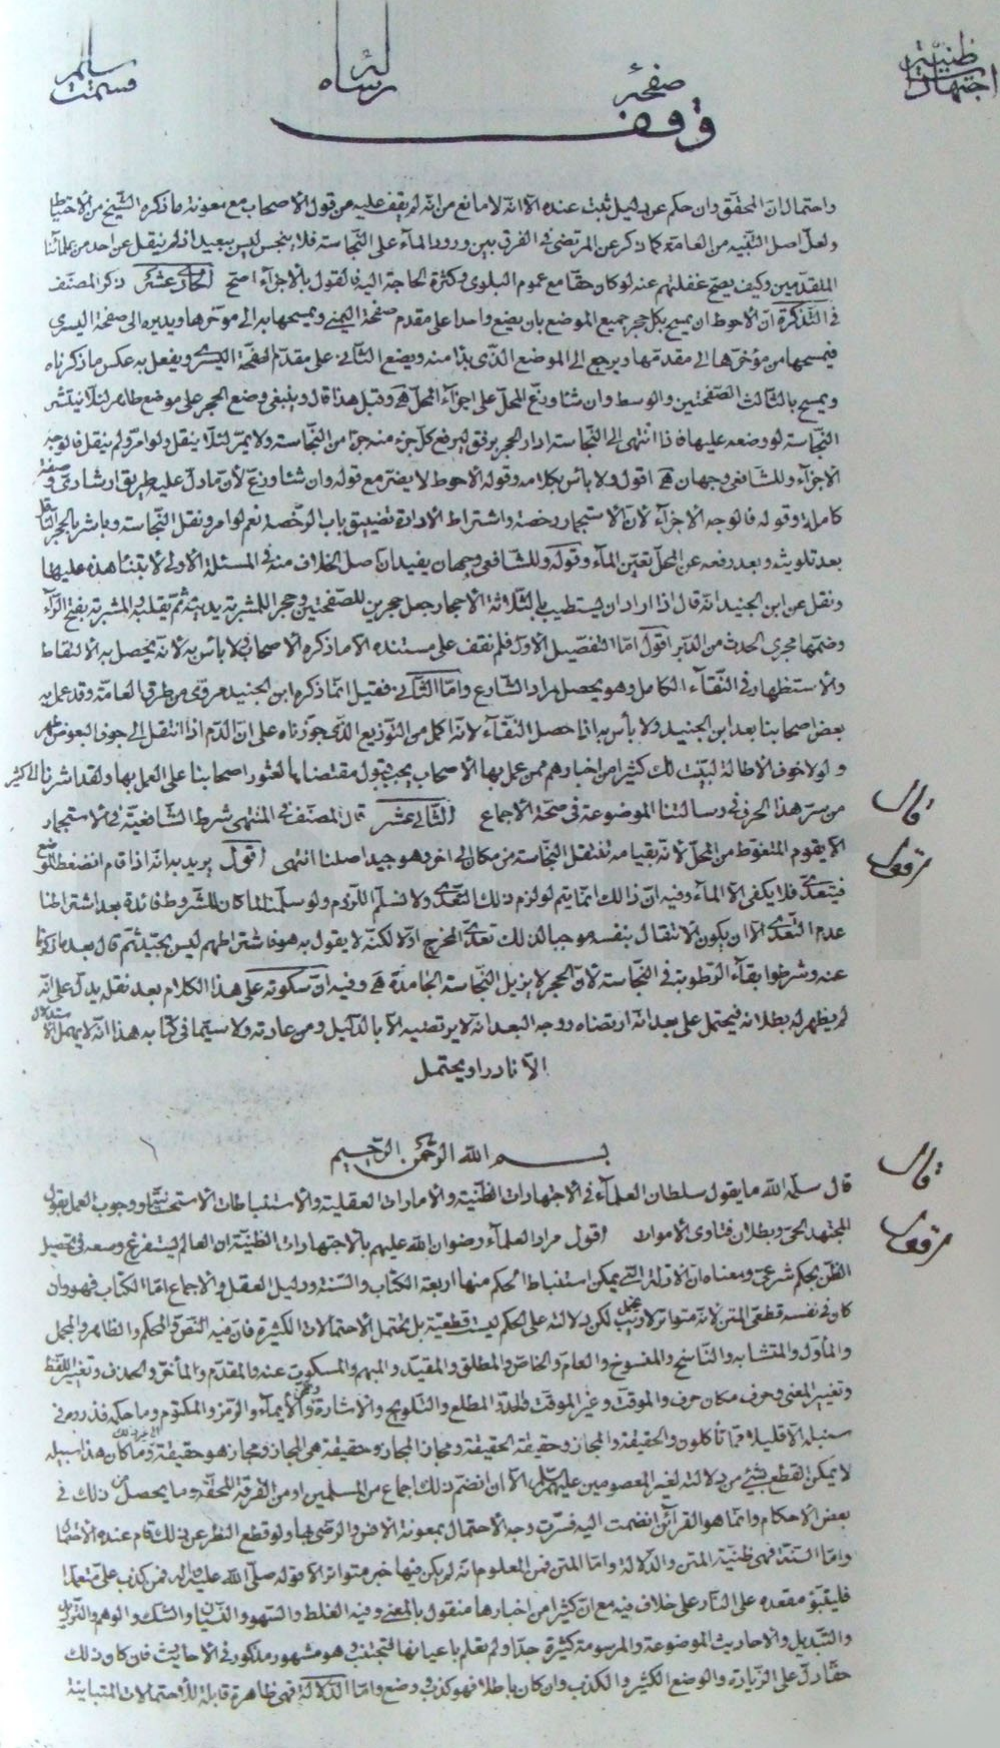 ظنية
اجتهادات
صفحه
رساله
رسالهٔ
قسمت
وقف
واحتمال ان المحقق وان حكم عن دليل ثبت عنده الا انه لا مانع من انه لم يقف عليه من قول الاصحاب مع معونة ما ذكره الشيخ من الاحتياط
ولعل اصل التقيه من العامة كما ذكر عن المرتضى في الفرق بين ورود الماء على النجاسة فلا ينجس ليس ببعيد اذ لم ينقل عن احد من علمائنا
المتقدمين وكيف يصح غفلتهم عنه لو كان حقا مع عموم البلوى وكثرة الحاجة اليه فالقول بالاجزاء اصح الحادي عشر ذكر المصنف
في التذكرة ان الاحوط ان يمسح بكل حجر جميع الموضع بان يضع واحدا على مقدم صفحة اليمنى ويمسحها به الى مؤخرها ويديره الى صفحة اليسرى
فيمسحها من مؤخرها الى مقدمها ويرجع الى الموضع الذي بدا منه ويضع الثاني على مقدم الصفحة اليسرى ويفعل به عكس ما ذكرناه
ويمسح بالثالث الصفحتين والوسط وان شاء وزع المحل على اجزاء المحل وقبل هذا قال وينبغي وضع الحجر على موضع طاهر لئلا ينتشر
النجاسة لو وضعه عليها فاذا انتهى الى النجاسة ادار الحجر برفق ليرفع كل جزء منه جزءا من النجاسة ولا يمر لئلا ينقل ولو امر ولم ينقل فالوجه
الاجزاء وللشافعي وجهان اقول ولا باس بكلامه وقوله الاحوط لا يضر مع قوله وان شاء وزع لان ما دل عليه طريق ارشادي وصفة
كاملة وقوله فالوجه الاجزاء لان الاستجمار رخصة واشتراط الادارة تضييق باب الرخصة نعم لو امر ونقل النجاسة وباشر بالحجر الناقل
بعد تلويثه وبعد رفعه عن المحل تعين الماء وقوله وللشافعي وجهان يفيد ان اصل الخلاف منه في المسئلة الاولى لابتناء هذه عليها
ونقل عن ابن الجنيد انه قال اذا اراد ان يستطيب بالثلاثة الاحجار جعل حجرين للصفحتين وحجرا للمسربة يدنيه ثم يقلبه والمسربة بفتح الراء
وضمها مجرى الحدث من الدبر اقول اما التفصيل الاول فلم نقف على مستنده الا ما ذكره الاصحاب ولا باس به لانه يحصل به الالتقاط
والاستظهار في النقاء الكامل وهو يحصل مراد الشارع واما الثاني فقيل انما ذكره ابن الجنيد مروى من طرق العامة وقد عمل به
بعض اصحابنا بعد ابن الجنيد ولا باس به اذا حصل النقاء لانه اكمل من التوزيع الذي جوزناه على ان الدم اذا انتقل الى جوف البعوض طهر
ولولا خوف الاطالة لبينت لك كثيرا من اخبارهم ممن عمل بها الاصحاب يجب قبول مقتضاها لعثور اصحابنا على العمل بها ولقد اشرنا الى كثير
من سر هذا الحرف في رسالتنا الموضوعة في صحة الاجماع الثاني عشر قال المصنف في المنتهى شرط الشافعية في الاستجمار
الا يقوم المتغوط من المحل لانه بقيامه تنتقل النجاسة من مكان الى اخر وهو جيد اصلنا انتهى اقول يريد به انه اذا قام انضغط الموضع
فيتعدى فلا يكفي الا الماء وفيه ان ذلك انما يتم لو لزم ذلك التعدي ولا نسلم اللزوم ولو سلمنا لما كان للشروط فائدة بعد اشتراطنا
عدم التعدي الا ان يكون الانتقال بنفسه موجبا لذلك تعدى المخرج او لا لكنه لا يقول به هو فاشتراطهم ليس بجيد ثم قال بعد ما ذكرنا
عنه وشرطوا بقاء الرطوبة في النجاسة لان الحجر لا يزيل النجاسة الجامدة وفيه ان سكوته على هذا الكلام بعد نقله يدل على انه
لم يظهر له بطلانه فيحتمل على بعد انه ارتضاه ووجه البعد انه لا يرتضيه الا بالدليل ومن عادته ولا سيما في كتابه هذا انه لا يهمل الاستدلال
الا نادرا ويحتمل
قال
اقول
بسم الله الرحمن الرحيم
قال سلمه الله ما يقول سلطان العلماء في الاجتهادات الظنية والامارات العقلية والاستنباطات الاستحسانية ووجوب العمل بقول
المجتهد الحي وبطلان فتاوى الاموات اقول مراد العلماء رضوان الله عليهم بالاجتهادات الظنية ان العالم يستفرغ وسعه في تحصيل
الظن بحكم شرعي ومعناه ان الادلة التي يمكن استنباط الحكم منها اربعة الكتاب والسنة ودليل العقل والاجماع اما الكتاب فهو وان
كان في نفسه قطعي المتن لانه متواتر لا ريب فيه لكن دلالته على الحكم ليست قطعية بل تحتمل الاحتمالات الكثيرة فان فيه النص والمحكم والظاهر والمجمل
والمأول والمتشابه والناسخ والمنسوخ والعام والخاص والمطلق والمقيد والمبهم والمسكوت عنه والمقدم والمأخر والحذف وتغيير اللفظ
وتغيير المعنى وحرف مكان حرف والموقت وغير الموقت والحد والمطلع والتلويح والاشارة والايماء والرمز والمكتوم وما حكمه فذروه في
سنبله الا قليلا مما تأكلون والحقيقة والمجاز وحقيقة الحقيقة ومجاز المجاز وحقيقة هي المجاز ومجاز هو حقيقة وما كان هذا سبيله
لا يمكن القطع بشيء من دلالته لغير المعصومين عليهم السلام الا ان انضم ذلك اجماع من المسلمين او من الفرقة المحقة وما يحصل من ذلك في
بعض الاحكام وانما هو القرائن انضمت اليه فسرت وجه الاحتمال بمعونة الانس والرضى بها ولو قطع النظر عن ذلك قام عنده الاحتمال
واما السنة فهي ظنية المتن والدلالة واما المتن فمن المعلوم انه لم يكن فيها خبر متواتر الا قوله صلى الله عليه واله فمن كذب على متعمدا
فليتبوء مقعده على النار على خلاف فيه مع ان كثيرا من اخبارها منقول بالمعنى وفيه الغلط والسهو والنسيان والشك والوهم والتزييل
والتبديل والاحاديث الموضوعة والمرسومة كثيرة جدا ولم تعلم باعيانها فتجتنب وهو مشهور مذكور في الاحاديث فان كان ذلك
حقا دل على الزيادة والوضع الكثير والكذب وان كان باطلا فهو كذب وضع واما الدلالة فهي ظاهرة قابلة للاحتمالات المتباينة
قال
اقول